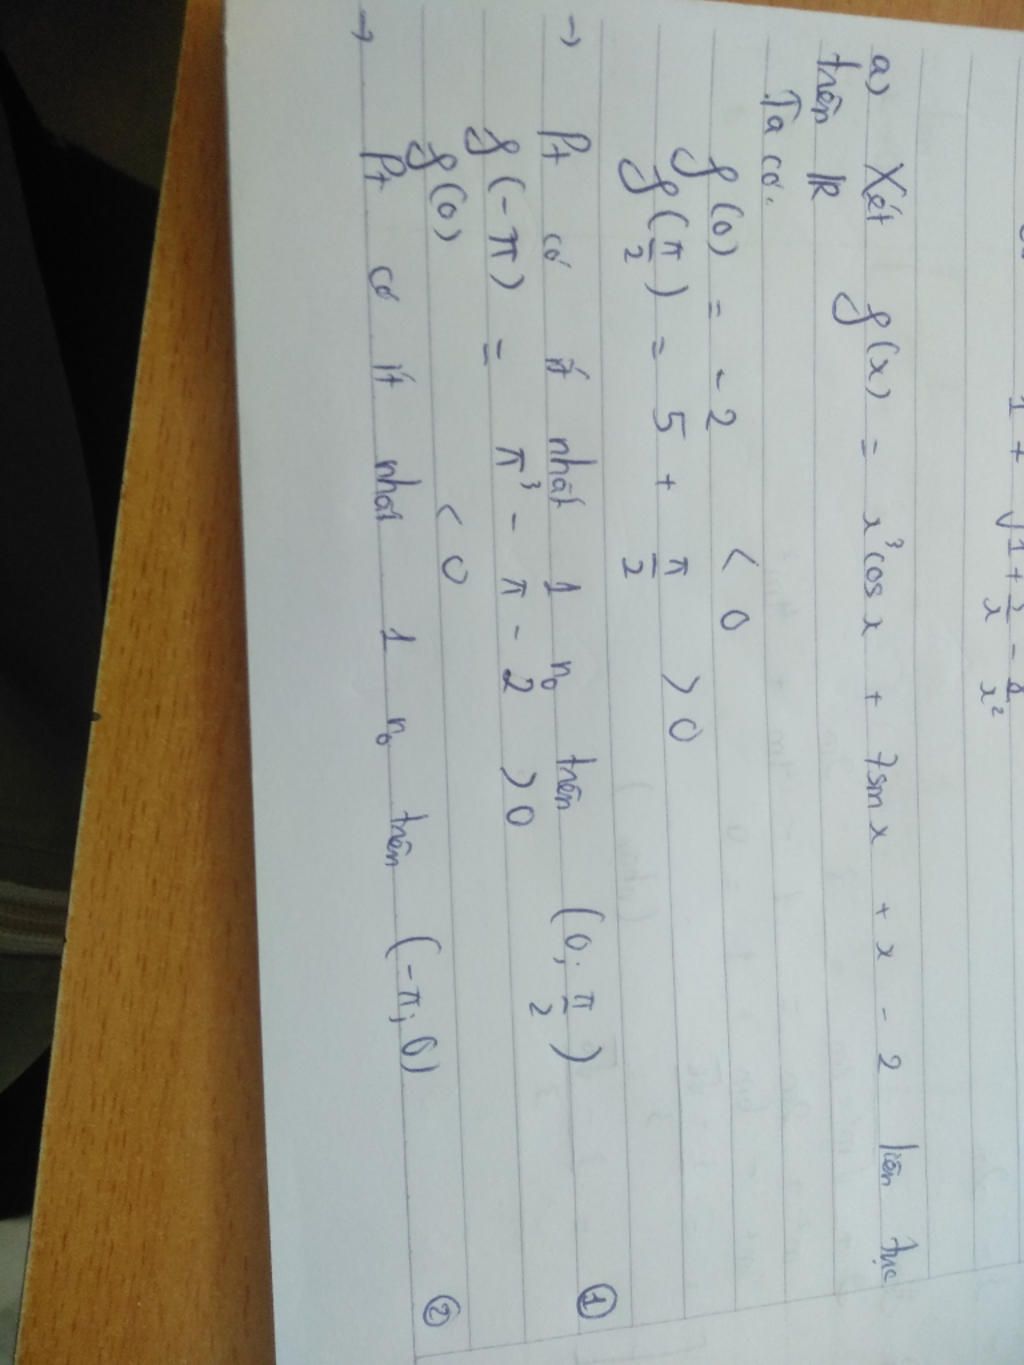 1 + √1 + 3/x - 8/x²
a) Xét f(x) = x³cos x + 7sin x + x - 2 liên tục
trên ℝ
Ta có:
f(0) = -2 < 0
f(π/2) = 5 + π/2 > 0
→ Pt có ít nhất 1 n₀ trên (0; π/2) ①
f(-π) = π³ - π - 2 > 0
f(0) < 0
→ Pt có ít nhất 1 n₀ trên (-π; 0) ②